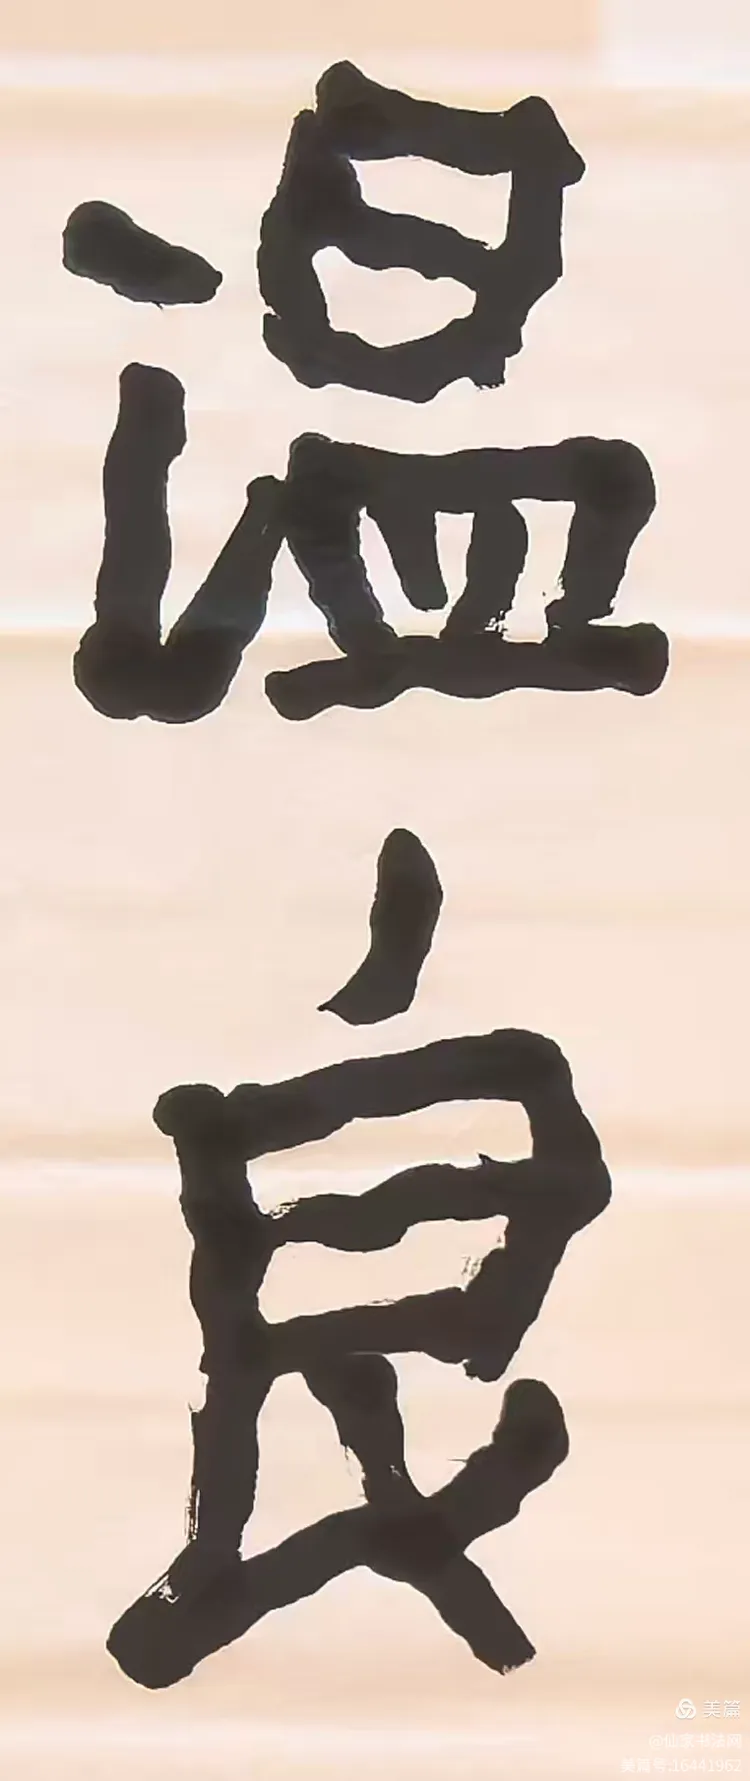 温良
美篇
@仙家书法网
美篇号:16441962